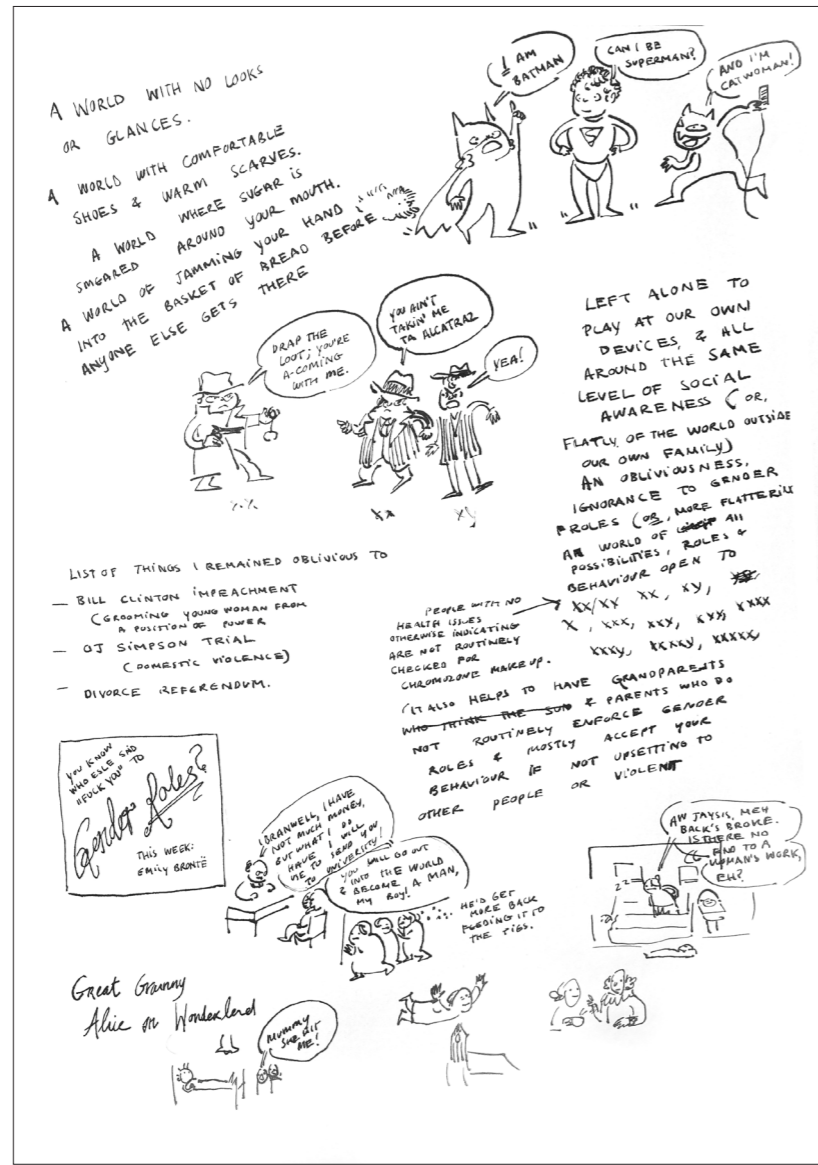 A WORLD WITH NO LOOKS
OR GLANCES.
A WORLD WITH COMFORTABLE
SHOES & WARM SCARVES.
A WORLD WHERE SUGAR IS
SMEARED AROUND YOUR MOUTH.
A WORLD OF JAMMING YOUR HAND
INTO THE BASKET OF BREAD BEFORE
ANYONE ELSE GETS THERE
I AM
BATMAN
CAN I BE
SUPERMAN?
AND I'M
CATWOMAN!
S
DRAP THE
LOOT; YOU'RE
A-COMING
WITH ME.
YOU AIN'T
TAKIN' ME
TA ALCATRAZ
YEA!
XX
XX
XY
LEFT ALONE TO
PLAY AT OUR OWN
DEVICES, & ALL
AROUND THE SAME
LEVEL OF SOCIAL
AWARENESS (OR,
FLATLY, OF THE WORLD OUTSIDE
OUR OWN FAMILY)
AN OBLIVIOUSNESS,
IGNORANCE TO GENDER
ROLES (OR, MORE FLATTERILY
AN WORLD OF All
POSSIBILITIES, ROLES &
BEHAVIOUR OPEN TO
XX/XY XX, XY,
X, XXX, XXY, XYY, XXXX
XXXY, XXXXY, XXXXX,
PEOPLE WITH NO
HEALTH ISSUES
OTHERWISE INDICATING
ARE NOT ROUTINELY
CHECKED FOR
CHROMOZONE MAKEUP.
(IT ALSO HELPS TO HAVE GRANDPARENTS
WHO THINK THE SUN & PARENTS WHO DO
NOT ROUTINELY ENFORCE GENDER
ROLES & MOSTLY ACCEPT YOUR
BEHAVIOUR IF NOT UPSETTING TO
OTHER PEOPLE OR VIOLENT
LIST OF THINGS I REMAINED OBLIVIOUS TO
— BILL CLINTON IMPEACHMENT
(GROOMING YOUNG WOMAN FROM
A POSITION OF POWER
— OJ SIMPSON TRIAL
(DOMESTIC VIOLENCE)
— DIVORCE REFERENDUM.
YOU KNOW
WHO ESLE SAID
"FUCK YOU" TO
Gender Roles?
THIS WEEK:
EMILY BRONTË
BRANWELL, I HAVE
NOT MUCH MONEY,
BUT WHAT I DO
HAVE I WILL
USE TO SEND YOU
TO UNIVERSITY!
YOU WILL GO OUT
INTO THE WORLD
& BECOME A MAN,
MY BOY!
HE'D GET
MORE BACK
FEEDING IT TO
THE PIGS.
AW JAYSIS, MEH
BACK'S BROKE.
IS THERE NO
END TO A
WOMAN'S WORK,
EH?
zz
Great Granny
Alice in Wonderland
MUMMY
SHE HIT
ME!